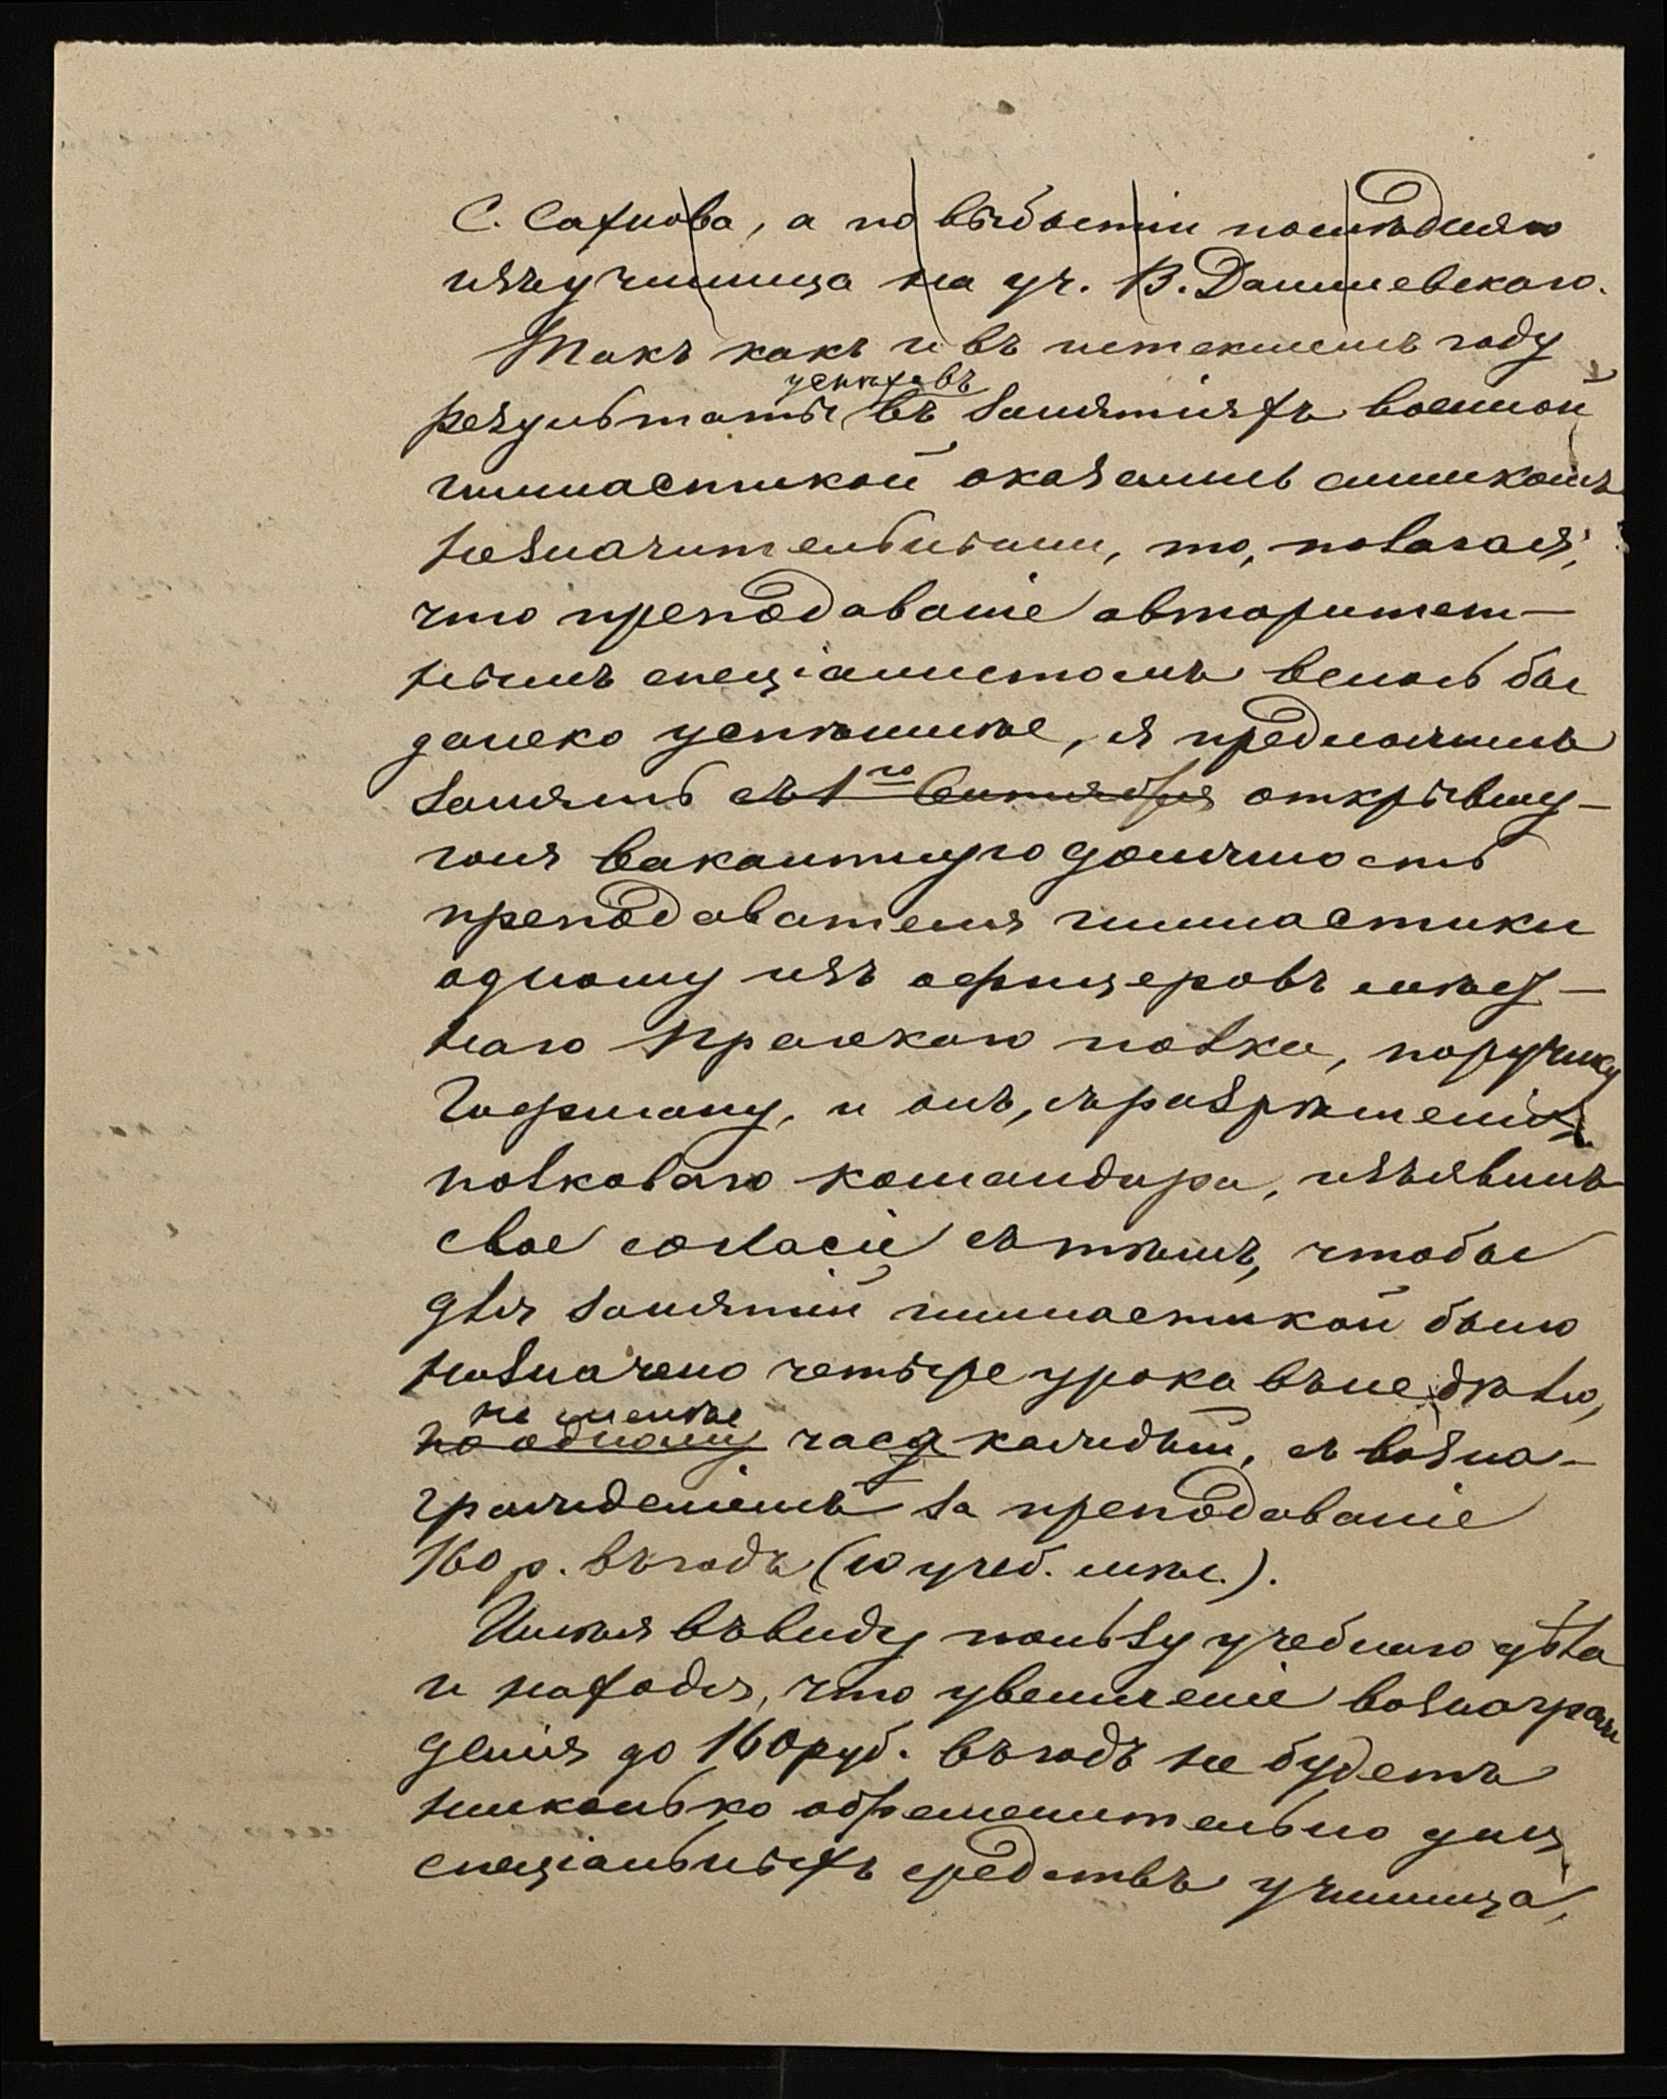 С. Сахнова, а по выбытіи послѣдняго
изъ училища на уч. В. Данилевскаго.
Такъ какъ и въ истекшемъ году
успѣховъ
результаты въ занятіяхъ военной
гимнастикой оказались слишкомъ
незначительными, то, полагая,
что преподаваніе авторитет-
нымъ спеціалистомъ велось бы
далеко успѣшнѣе, я предложилъ
занять съ 1го Сентября открывшу-
юся вакантную должность
преподавателя гимнастики
одному изъ офицеровъ мѣст-
наго полка, поручику
Гофману, и онъ, съ разрѣшенія
полковаго командира, изъявилъ
свое согласіе съ тѣмъ, чтобы
для занятій гимнастикой было
назначено четыре урока въ недѣлю,
не менѣе
по одному часа каждый, съ возна-
гражденіемъ за преподаваніе
160 р. въ годъ (10 учеб. мѣс.).
Имѣя въ виду пользу учебнаго дѣла
и находя, что увеличеніе вознаграж
денія до 160 руб. въ годъ не будетъ
нисколько обременительно для
спеціальныхъ средствъ училища,